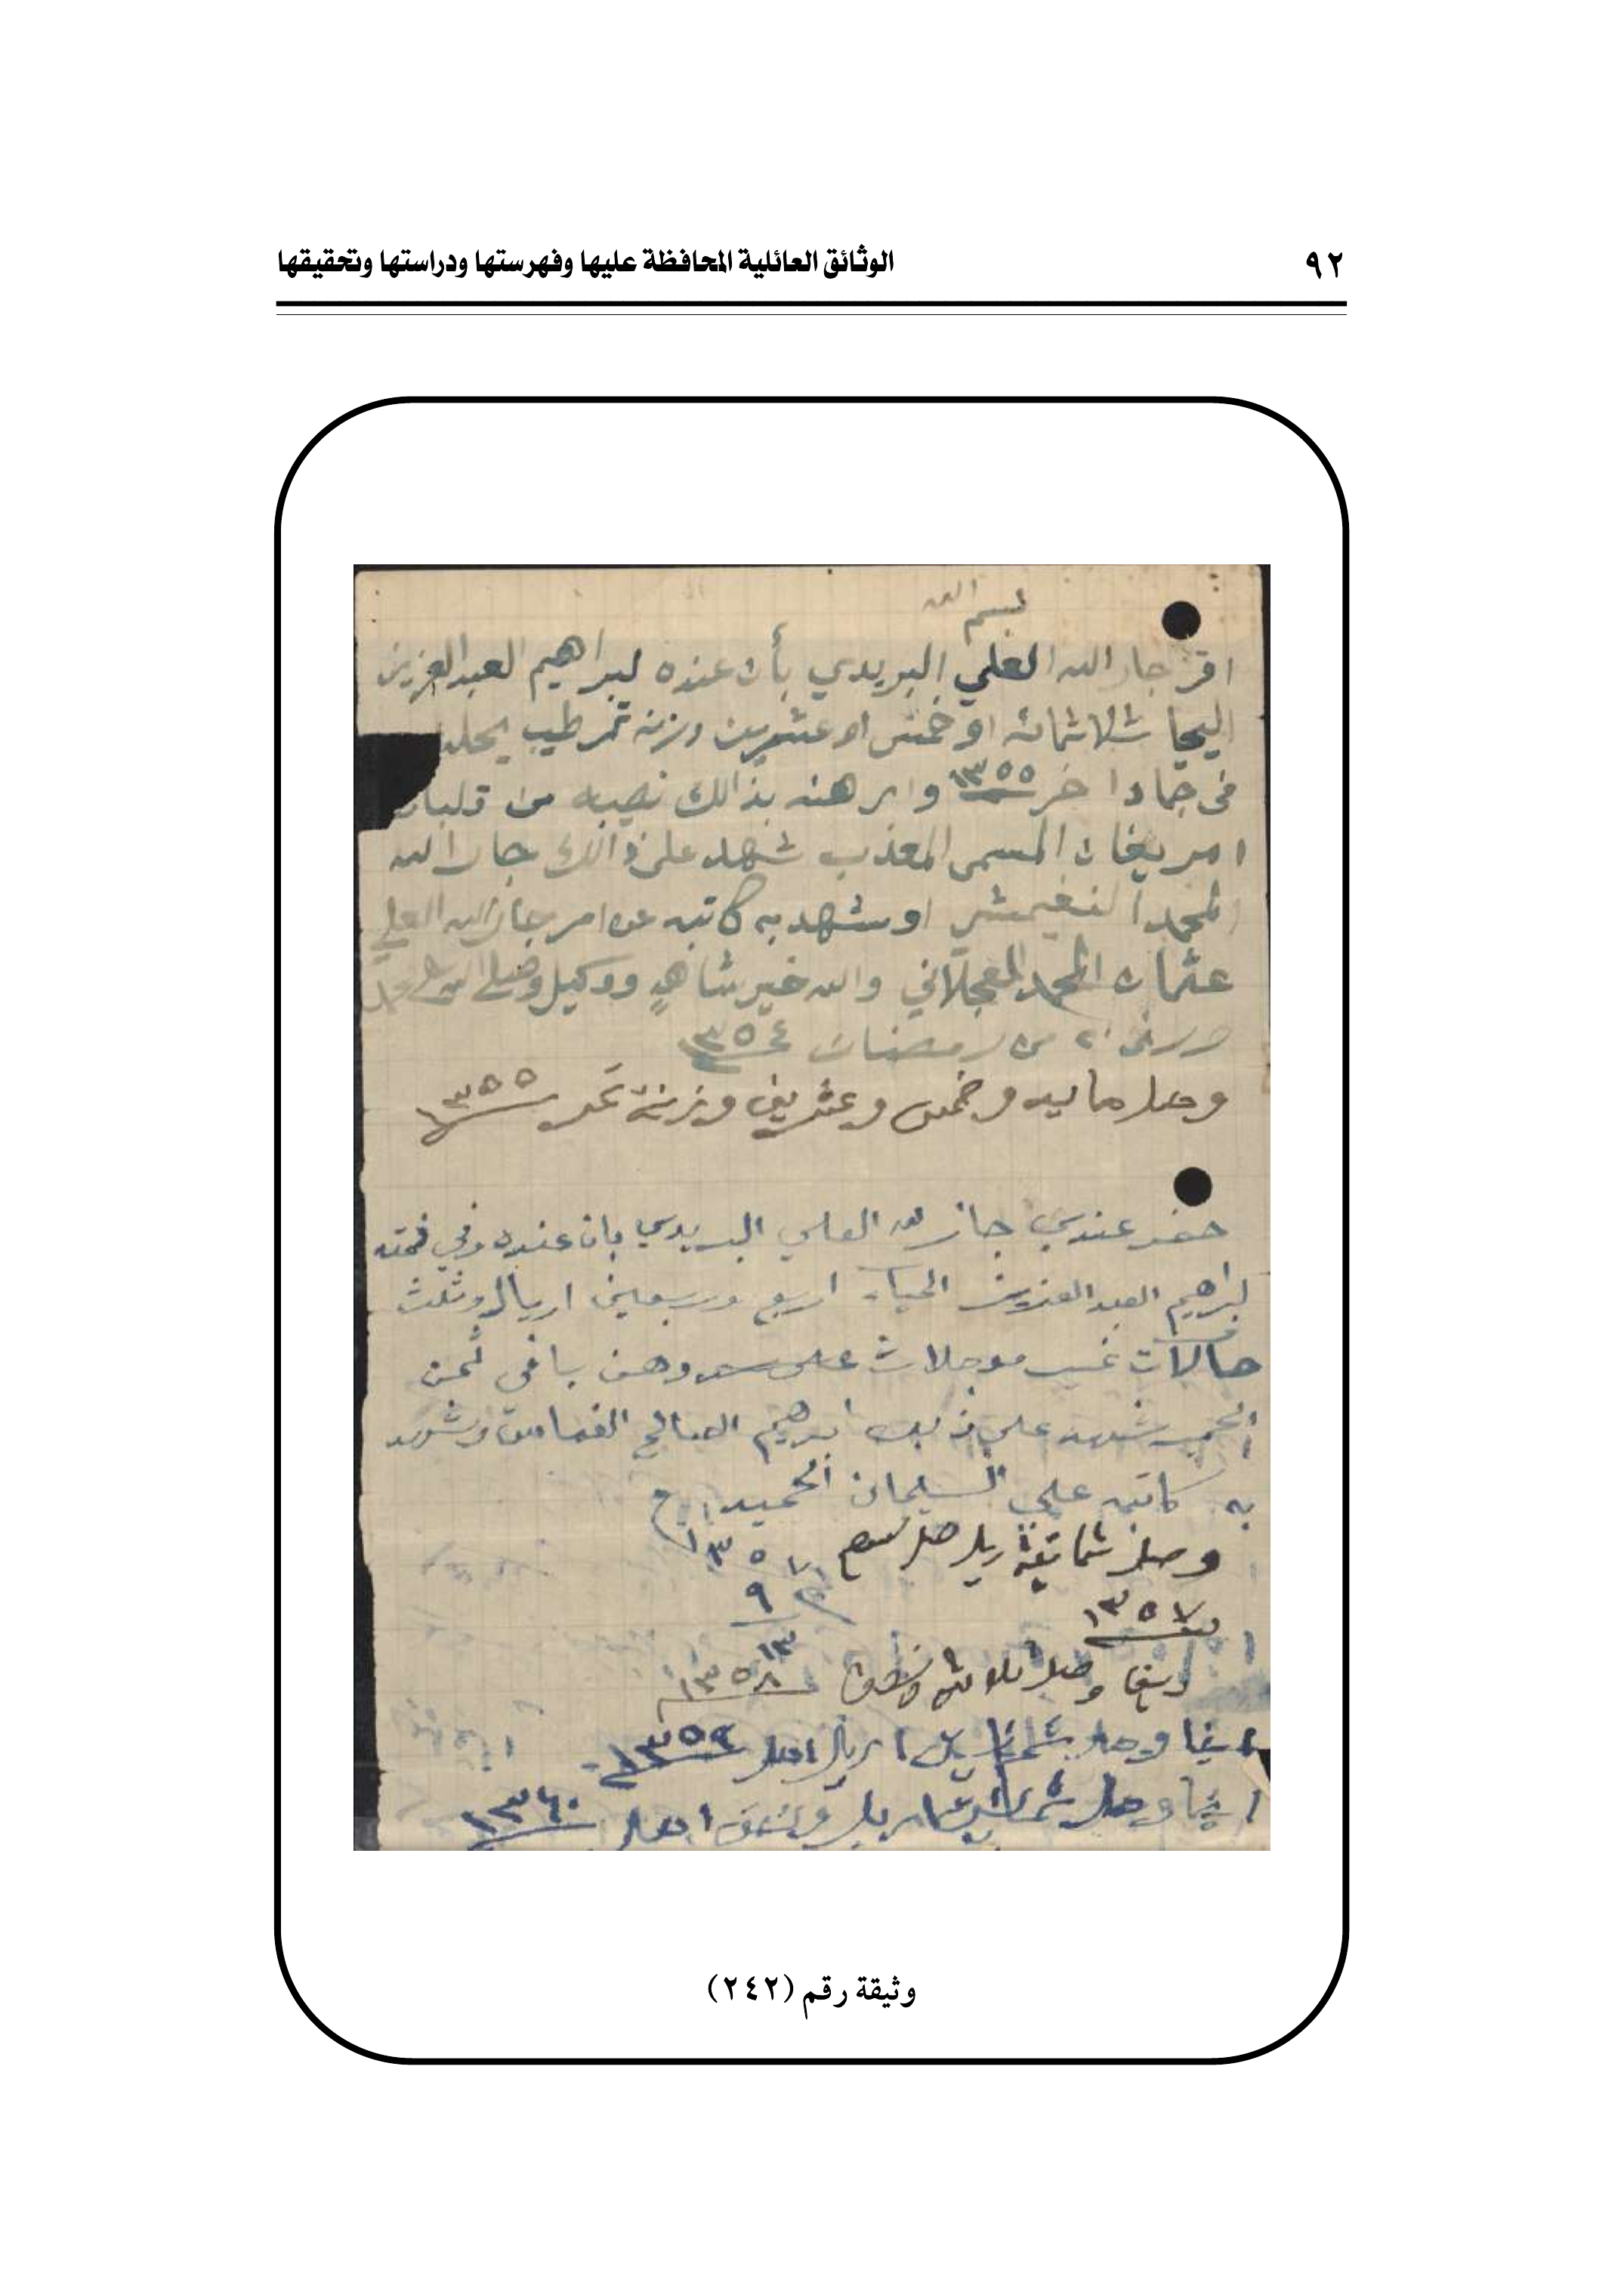 ٩٢
الوثائق العائلية المحافظة عليها وفهرستها ودراستها وتحقيقها
بسم الله
اقر جار الله العلي البريدي بأن عنده لبراهيم العبدالعزيز
اليحيا ثلاثمائه او خمس او عشرين وزنه تمر طيب يحلن
في جمادا خر ١٣٥٥ وارهنه بذالك نصيبه من
المسمى المعذب شهد على ذالك جار الله
المحمد النغيمشي او شهد به كاتبه عن امر جار الله العلي
عثمان المحمد العجلاني والله خير شاهد ووكيل وصلى الله على محمد
من رمضان ١٣٥٤
وصل مايه وخمس وعشرين وزنة تمر ١٣٥٥
حضر عندي جار الله العلي البريدي بان عنده وفي ذمته
لبراهيم العبد العزيز اليحيا اربع وربعين اريال وثلث
حالات غير موجلات وهن باقي ثمن
شهد على ذلك ابرهيم الصالح وشهد
به كاتبه علي السليمان الحميد
١٣٥٧
وصل ثمانية ريل
٩
١٣٥٧
١٣
ايضا وصل ثلاثة ١٣٥٨
ايضا وصل اريال ١٣٥٩
ايضا وصل اريل ونصف ١٣٦٠
وثيقة رقم (٢٤٢)